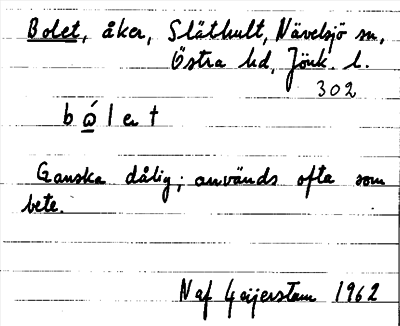 Bolet, åker, Släthult, Nävelsjö sn,
Östra hd, Jönk. l.
302
b ώ l e t
Ganska dålig; används ofta som
bete.
Naf Geijerstam 1962